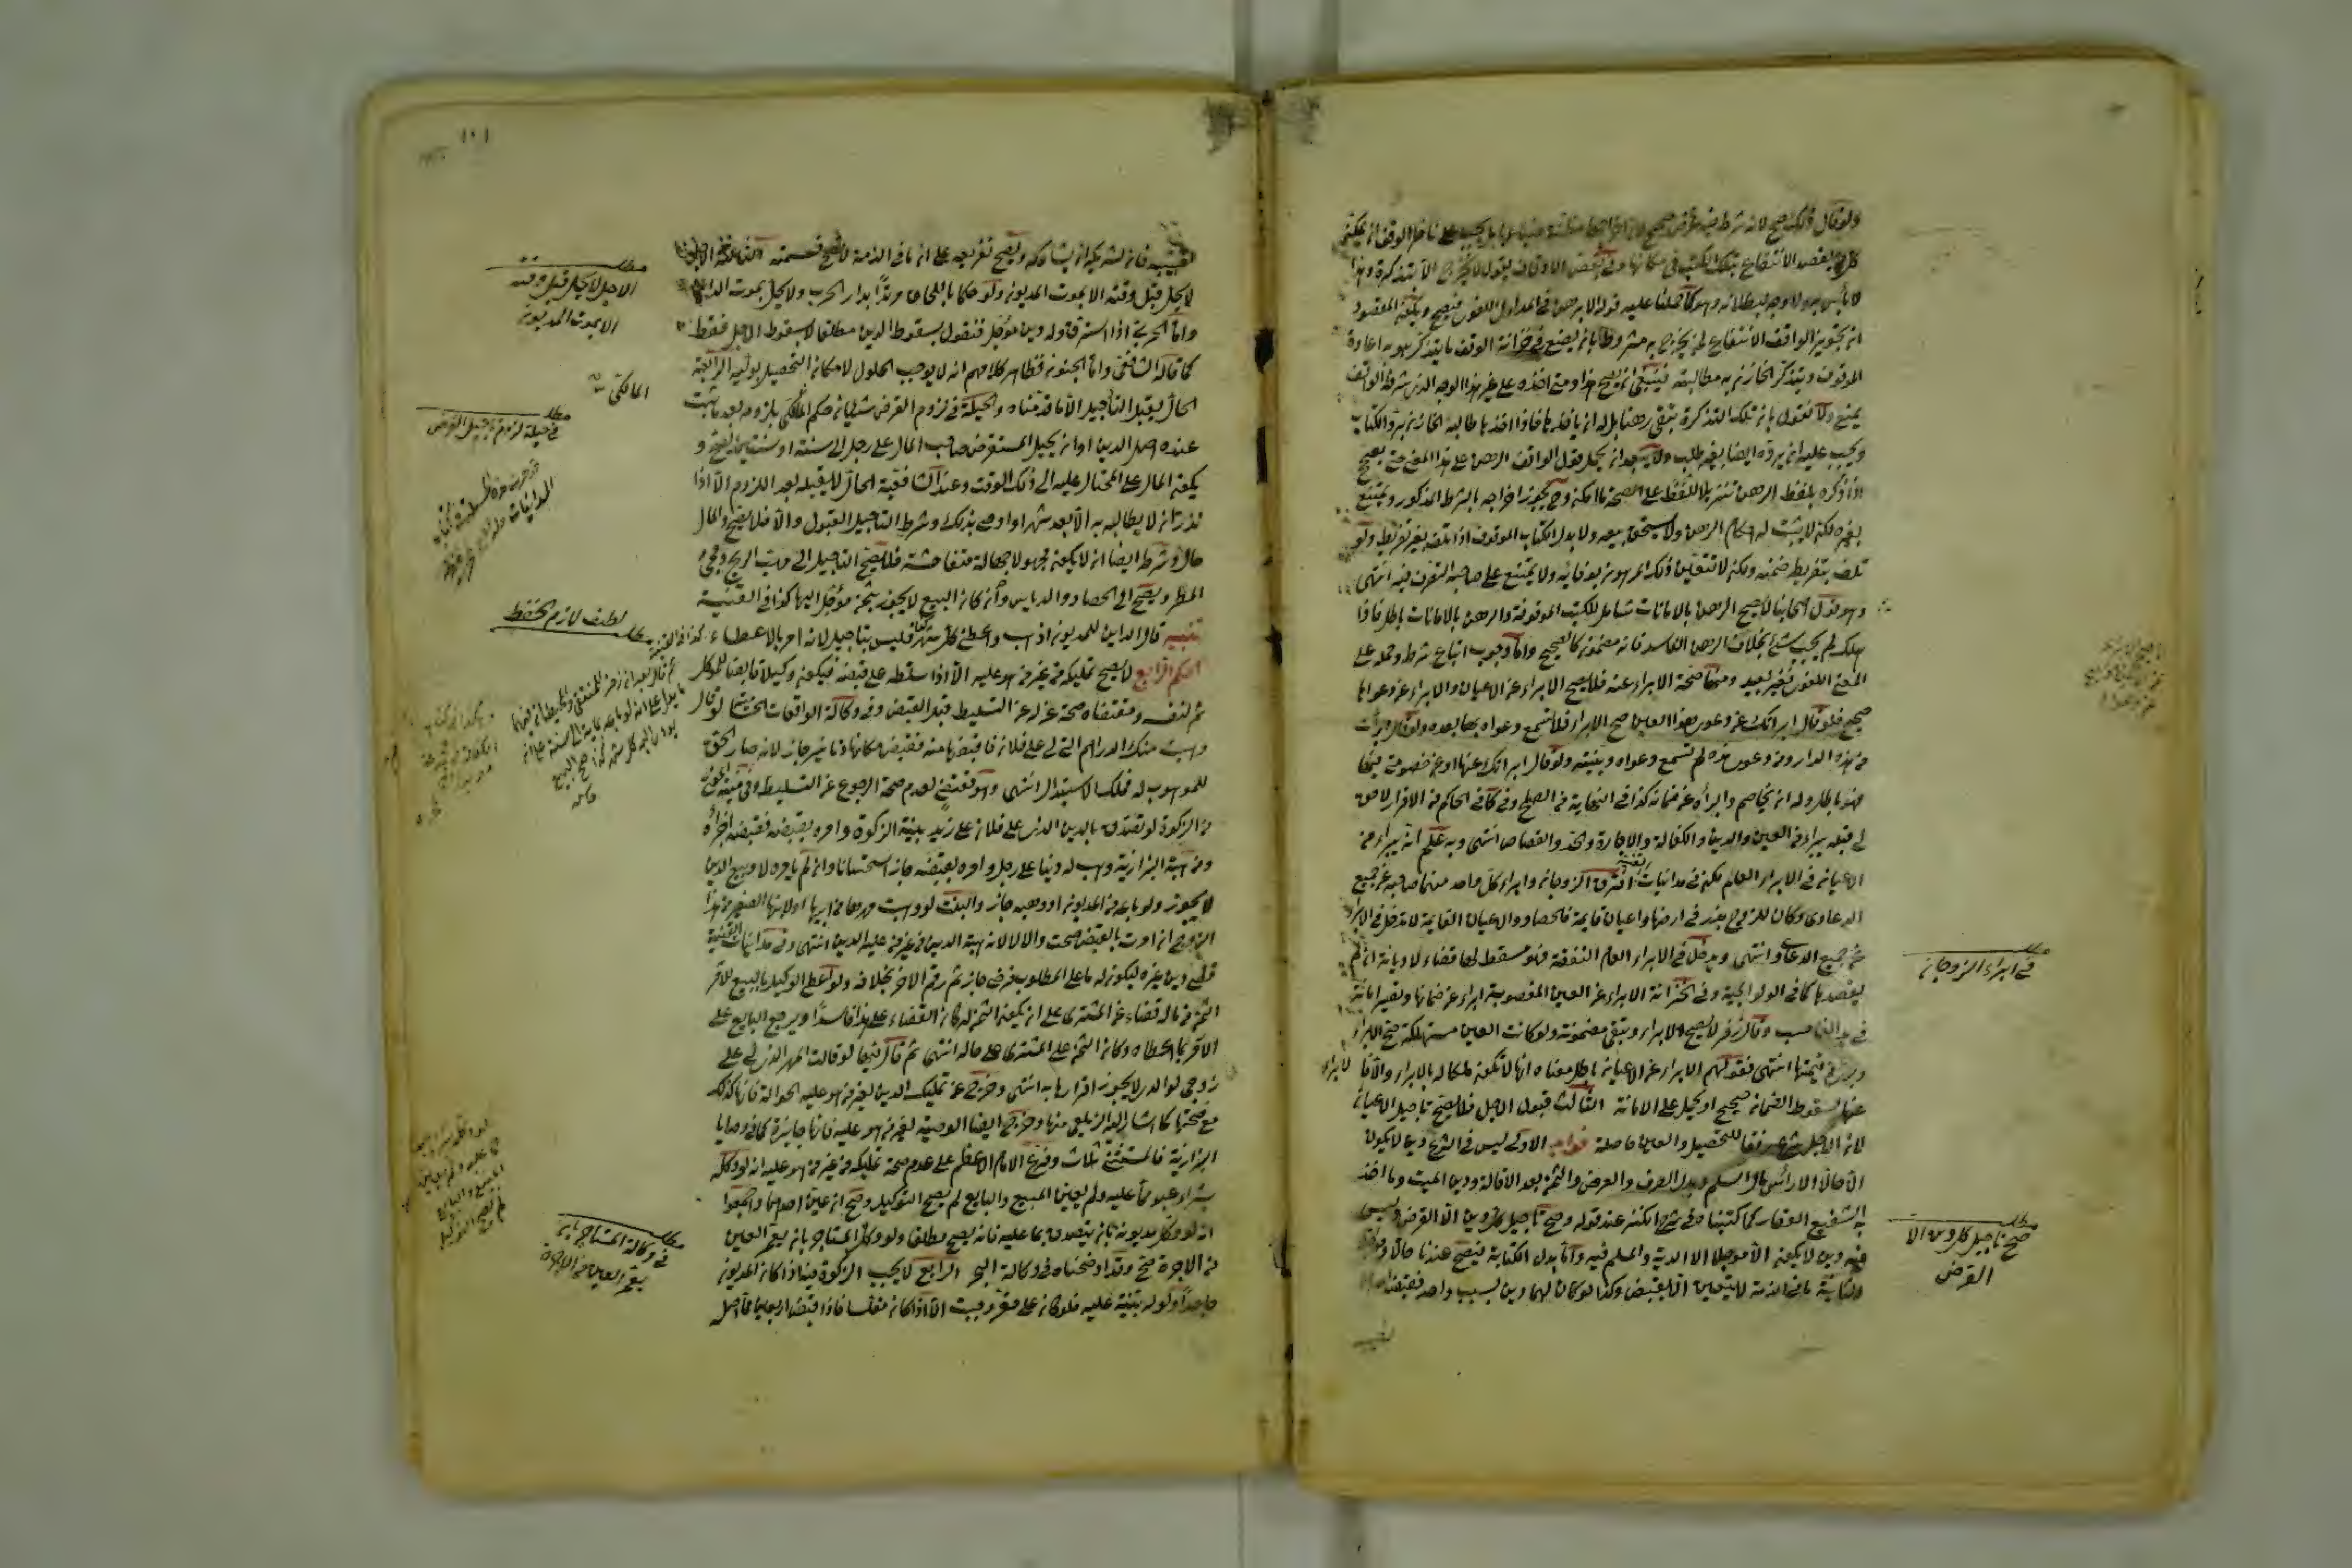 ولو قال ذلك صح لانه شرط فيه غرض صحيح لان اخراجها مظنة ضياعها بل يجب على ناظر الوقف ان يمكن
كل من يقصد الانتفاع بتلك الكتب في مكانها وفي بعض الاوقاف يقول لا تخرج الا بتذكرة وهذا
لا بأس به ولا وجه لبطلانه وهو كما حملنا عليه قوله الا برهن في المدلول اللغوي فيصح ويكون المقصود
ان تجويز الواقف الانتفاع لمن يخرج به مشروط بان يضع في خزانة الوقف ما يتذكر هو به اعادة
الموقوف ويتذكر الخازن به مطالبته فينبغي ان يصح هذا ومتى اخذه على غير هذا الوجه الذي شرطه الواقف
يمتنع ولا نقول بان تلك التذكرة تبقى رهنا بل له ان يأخذها فاذا اخذها طالبه الخازن برد الكتاب
ويجب عليه ان يرده ايضا بغير طلب ولا يبعد ان يحمل قول الواقف الرهن على هذا المعنى حتى يصح
اذا ذكره بلفظ الرهن تنزيلا للفظ على الصحة ما امكن وح يجوز اخراجه بالشرط المذكور ويمتنع
بغيره لكن لا يثبت له احكام الرهن ولا يستحق بيعه ولا بدل الكتاب الموقوف اذا تلف بغير تفريط ولو
تلف بتفريط ضمنه ولكن لا نتعين ذلك المرهون بوفائه ولا يمتنع على صاحبه التصرف فيه انتهى
وهو قول اصحابنا لا يصح الرهن بالامانات شامل للكتب الموقوفة والرهن بالامانات باطل فاذا
هلك لم يجب شئ بخلاف الرهن الفاسد فانه مضمون كالصحيح واما وجوب اتباع شرطه وحمله على
المعنى اللغوي فغير بعيد ومنها صحة الابراء عنه فلا يصح الابراء عن الاعيان والابراء عن دعواها
صحيح فلو قال ابرأتك عن دعوى هذا العين صح الابراء فلا تسمع دعواه بها بعده ولو قال برأت
من هذه الدار ومن دعوى هذه لم تسمع دعواه وبينته ولو قال ابرأتك عنها او عن خصومتي فيها
فهو باطل وله ان يخاصم والبرأه عن ضمانه كذا في النهاية في الصلح وفي كافي الحاكم من الاقرار لا حق
لي قبله يبراء من العين والدين والكفالة والاجارة والحد والقصاص انتهى وبه علم انه يبراء من
الاعيان في الابراء العام لكن في مداينات القنية افترق الزوجان وابراء كل واحد منهما صاحبه عن جميع
الدعاوى وكان للزوج بذر في ارضها واعيان قايمة فالحصاد والاعيان القايمة لا تدخل في الابراء
عن جميع الدعاوى انتهى ويدخل في الابراء العام الشفعة فهو مسقط لها قضاء لا ديانة ان لم
يقصدها كما في الولوالجية وفي الخزانة الابراء عن العين المغصوبة ابراء عن ضمانها وتصير امانة
في يد الغاصب وقال زفر لا يصح الابراء وتبقى مضمونة ولو كانت العين مستهلكة صح الابراء
وبرئ من قيمتها انتهى فقولهم الابراء عن الاعيان باطل معناه انها لا تكون ملكا له بالابراء والا فالابراء
عنها لسقوط الضمان صحيح او يحمل على الامانة الثالث قبول الاجل فلا يصح تاجيل الاعيان
لان الاجل شرع رفقا للتحصيل والعين حاصلة فوايد الاولى ليس في الشرع دين لا يكون
الا حالا الا رأس مال السلم وبدل الصرف والقرض والثمن بعد الاقالة ودين الميت وما اخذ
به الشفيع العقار كما كتبناه في شرح الكنز عند قوله وصح تاجيل كل دين الا القرض وليس
فيه دين لا يكون الا مؤجلا الا الدية والمسلم فيه واما بدل الكتابة فيصح عندنا حالا ومؤجلا
الثانية ما في الذمة لا يتعين الا بقبض وكذا لو كان لهما دين بسبب واحد فقبض احدهما
نصيبه
مطلب
في ابراء الزوجان
مطلب
صح تاجيل كل دين الا
القرض
١٠١
نصيبه فان لشريكه ان يشاركه ويصح تفريعه على ان ما في الذمة لا تصح قسمته الثالثة الاجل
لا يحل قبل وقته الا بموت المديون ولو حكما باللحاق مرتدا بدار الحرب ولا يحل بموت الداين
واما الحربي اذا استرق وله دين مؤجل فنقول بسقوط الدين مطلقا لا بسقوط الاجل فقط
كما قاله الشافعي واما الجنون فظاهر كلامهم انه لا يوجب الحلول لامكان التحصيل بوليه الرابعة
الحال يقبل التأجيل الا ما قدمناه والحيلة في لزوم القرض شيئان حكم المالكي بلزومه بعد ما ثبت
عنده اصل الدين او ان يحيل المستقرض صاحب المال على رجل الى سنة او سنتين فيصح و
يكون المال على المحتال عليه الى ذلك الوقت وعند الشافعية الحال لا يقبله بعد اللزوم الا اذا
نذر ان لا يطالبه به الا بعد شهر او اوصى بذلك وشرط التاجيل القبول والا فلا يصح والمال
حال وشرط ايضا ان لا يكون مجهولا جهالة متفاحشة فلا يصح التاجيل الى مهب الريح ومجئ
المطر ويصح الى الحصاد والدياس وان كان البيع لا يجوز بثمن مؤجل اليها كذا في القنية
تنبيه قال الداين للمديون اذهب واعطني كل شهر كذا فليس بتاجيل لانه امر بالاعطاء كذا في القنية
الحكم الرابع لا يصح تمليكه من غير من هو عليه الا اذا سلطه على قبضه فيكون وكيلا قابضا للموكل
ثم لنفسه ومقتضاه صحة عزله عن التسليط قبل القبض وفي وكالة الواقعات الحسامية لو قال
وهبت منك الدراهم التي لي على فلان فاقبضها منه فقبض مكانها دنانير جاز لانه صار الحق
للموهوب له فملك الاستبدال انتهى وهو يقتضي لعدم صحة الرجوع عن التسليط وفي منية المفتي
من الزكوة لو تصدق بالدين الذي على فلان على زيد بنية الزكوة وامره بقبضه فقبضه اجزأه
ومن هبة البزازية وهب له دينا على رجل وامره بقبضه جاز استحسانا وان لم يامره لا وبيع الدين
لا يجوز ولو باعه من المديون او وهبه جاز والبنت لو وهبت مهرها من ابيها او لابنها الصغير من هذا
الزوج ان امرت بالقبض صحت والا لا لانه هبة الدين من غير من عليه الدين انتهى وفي مداينات القنية
قضى دين غيره ليكون له ما على المطلوب فرضي جاز ثم رقم الاخر بخلافه ولو اعطى الوكيل بالبيع للآمر
الثمن من ماله قضاء عن المشتري على ان يكون الثمن له كان القضاء على هذا فاسدا ويرجع البايع على
الآمر بما اعطاه وكان الثمن على المشتري على حاله انتهى ثم قال فيها لو قالت المهر الذي لي على
زوجي لوالدي لا يجوز اقرارها به انتهى وخرج عن تمليك الدين لغير من هو عليه الحوالة فانها كذلك
مع صحتها كما اشار اليه الزيلعي منها وخرج ايضا الوصية لغير من هو عليه فانها جايزة كما في وصايا
البزازية فالمستثنى ثلاث وفرع الامام الاعظم على عدم صحة تمليكه من غير من هو عليه انه لو وكله
بشراء عبد بما عليه ولم يعين المبيع والبايع لم يصح التوكيل وصح ان عين احدهما واجمعوا
انه لو وكل مديونه بان يتصدق بما عليه فانه يصح مطلقا ولو وكل المستاجر بان يعمر العين
من الاجرة صح وقد اوضحناه في وكالة البحر الرابع لا يجب الزكوة فيه اذا كان المديون
جاحدا ولو له بينة عليه فلو كان على مقر وجبت الا اذا كان مفلسا فاذا قبض اربعين مما اصله
مطلب
الاجل لا يحل قبل وقته
الا بموت المديون
المالكي
مطلب
في حيلة لزوم تاجيل القرض
لطيف لازم الحفظ
مطلب
مطلب
في وكالة المستاجر بان
يعمر العين من الاجرة